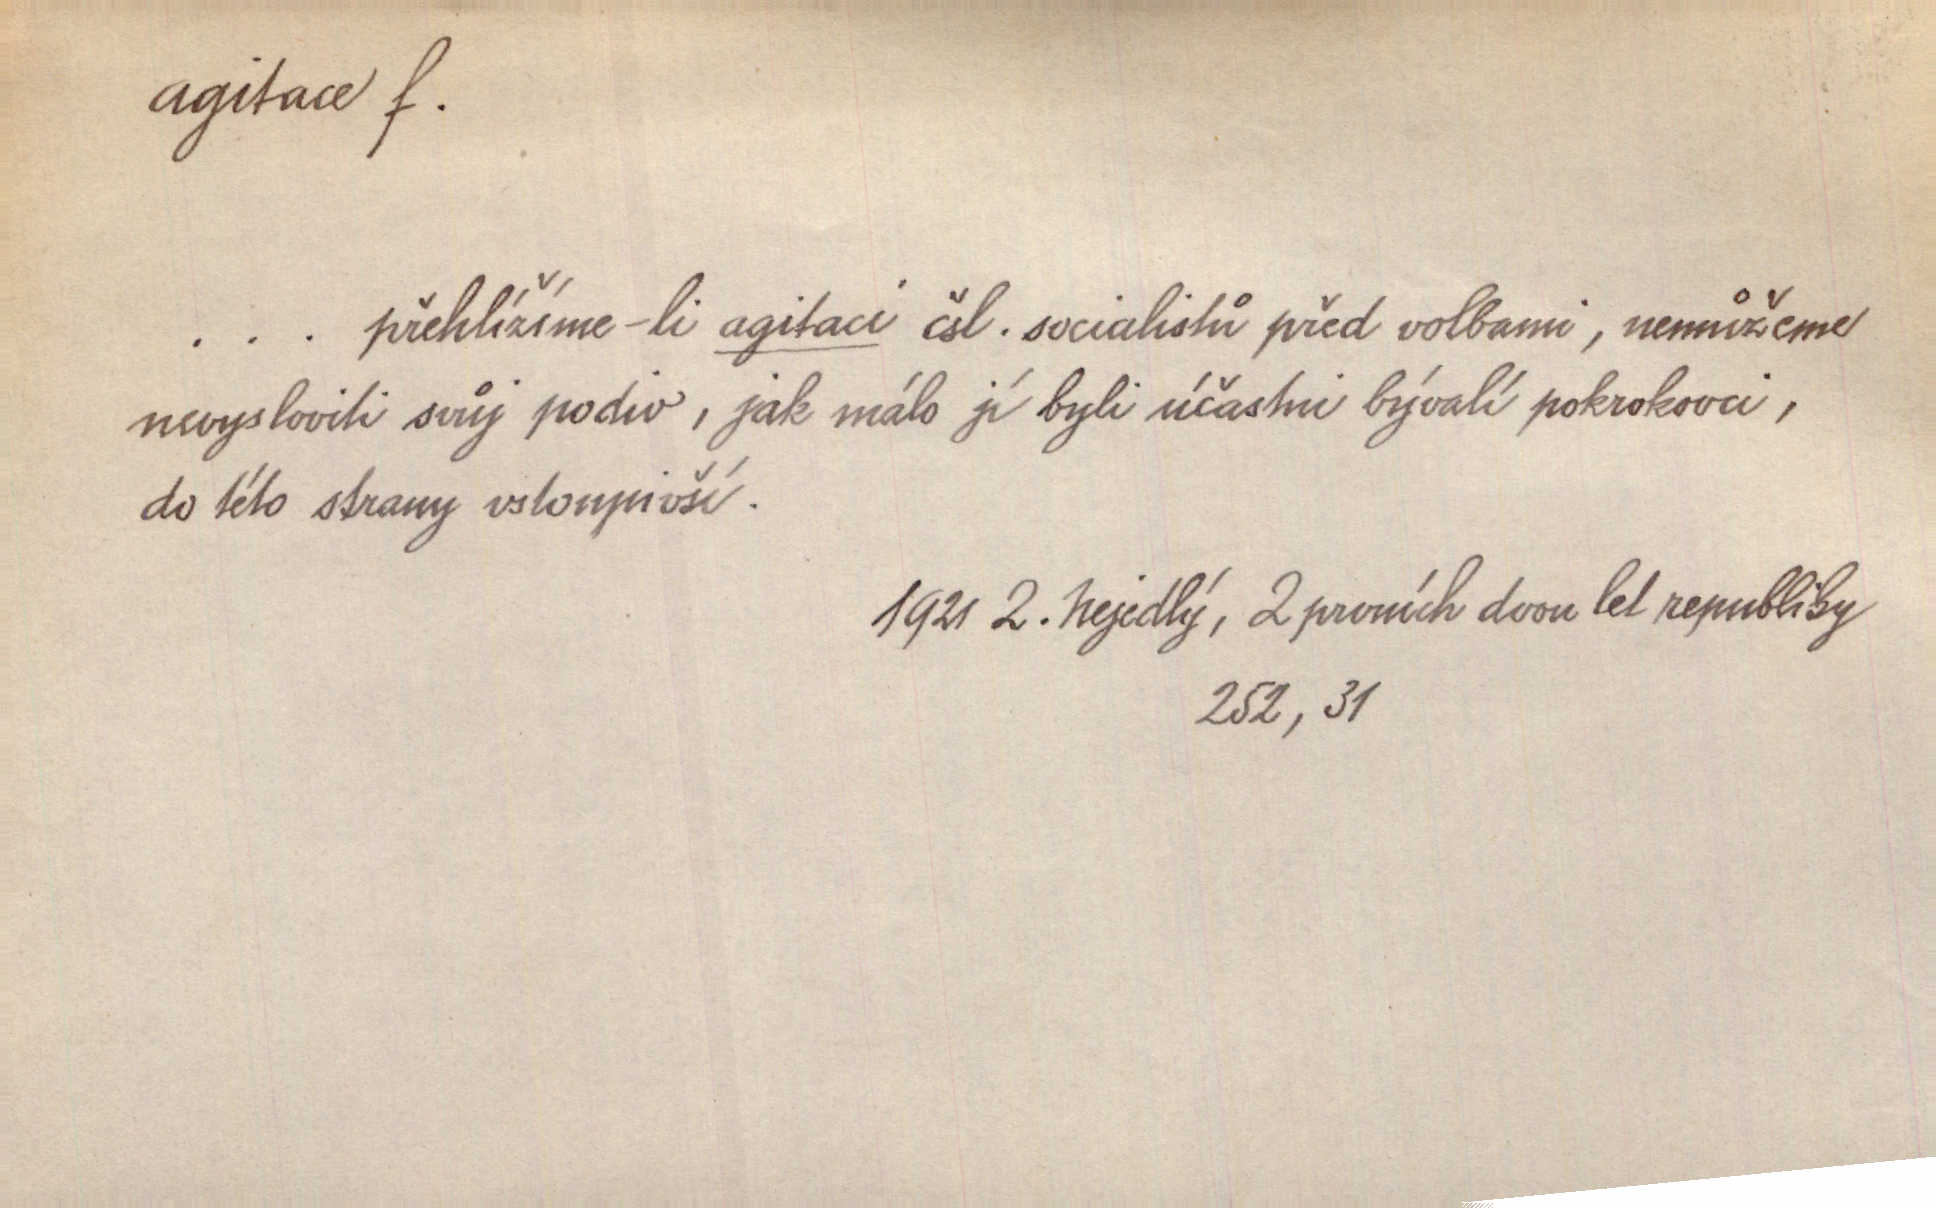 agitace f.
. . . přehlížíme-li agitaci čsl. socialistů před volbami, nemůžeme
nevysloviti svůj podiv, jak málo jí byli účastni bývalí pokrokovci,
do této strany vstoupivší.
1921 Z. Nejedlý, Z prvních dvou let republiky
252, 31